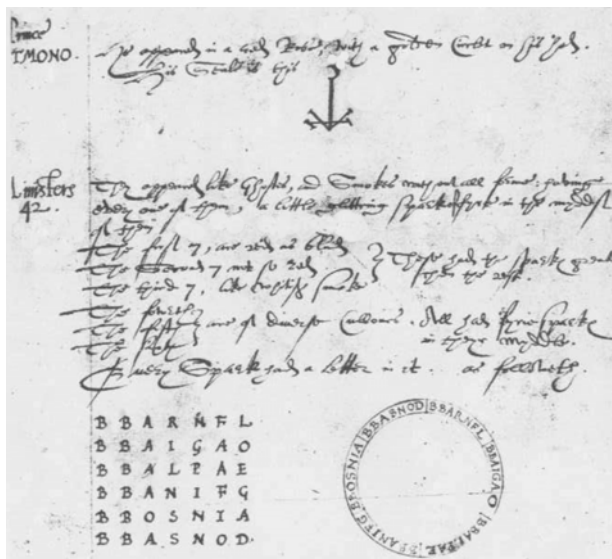 Prince he appeared in a red Robe, with a golden Cerclet on his hed.
TMONO. His Seale is this
Ministers They appeared like Ghostes, and Smokes without all forme: having
42. every one of them, a little glittring spark of fyre in the myddst
of them
The first 7, are red as blud
The Second 7, not so red
The third 7, like whitish smoke
These had the sparks greater
then the rest.
The fowrth
The fifth are of diverse cullours. All had fyne sparks
The sixt in theyr myddle.
Every Spark had a letter in it. as followeth.
B B A R N F L
B B A I G A O
B B A L P A E
B B A N I F G
B B O S N I A
B B A S N O D.
BBARNFL|BBAIGAO|BBALPAE|BBANIFG|BBOSNIA|BBASNOD|